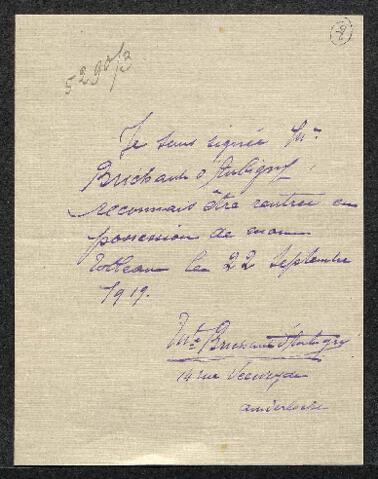 5290/3
Je sous signée Mme
Brichaut d'Aubigny
reconnais être rentrée en
possession de mon
tableau le 22 Septembre
1919.
Mme Brichaut d'Aubigny
14 rue
Anderlecht